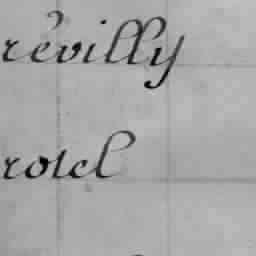 révilly
rotel